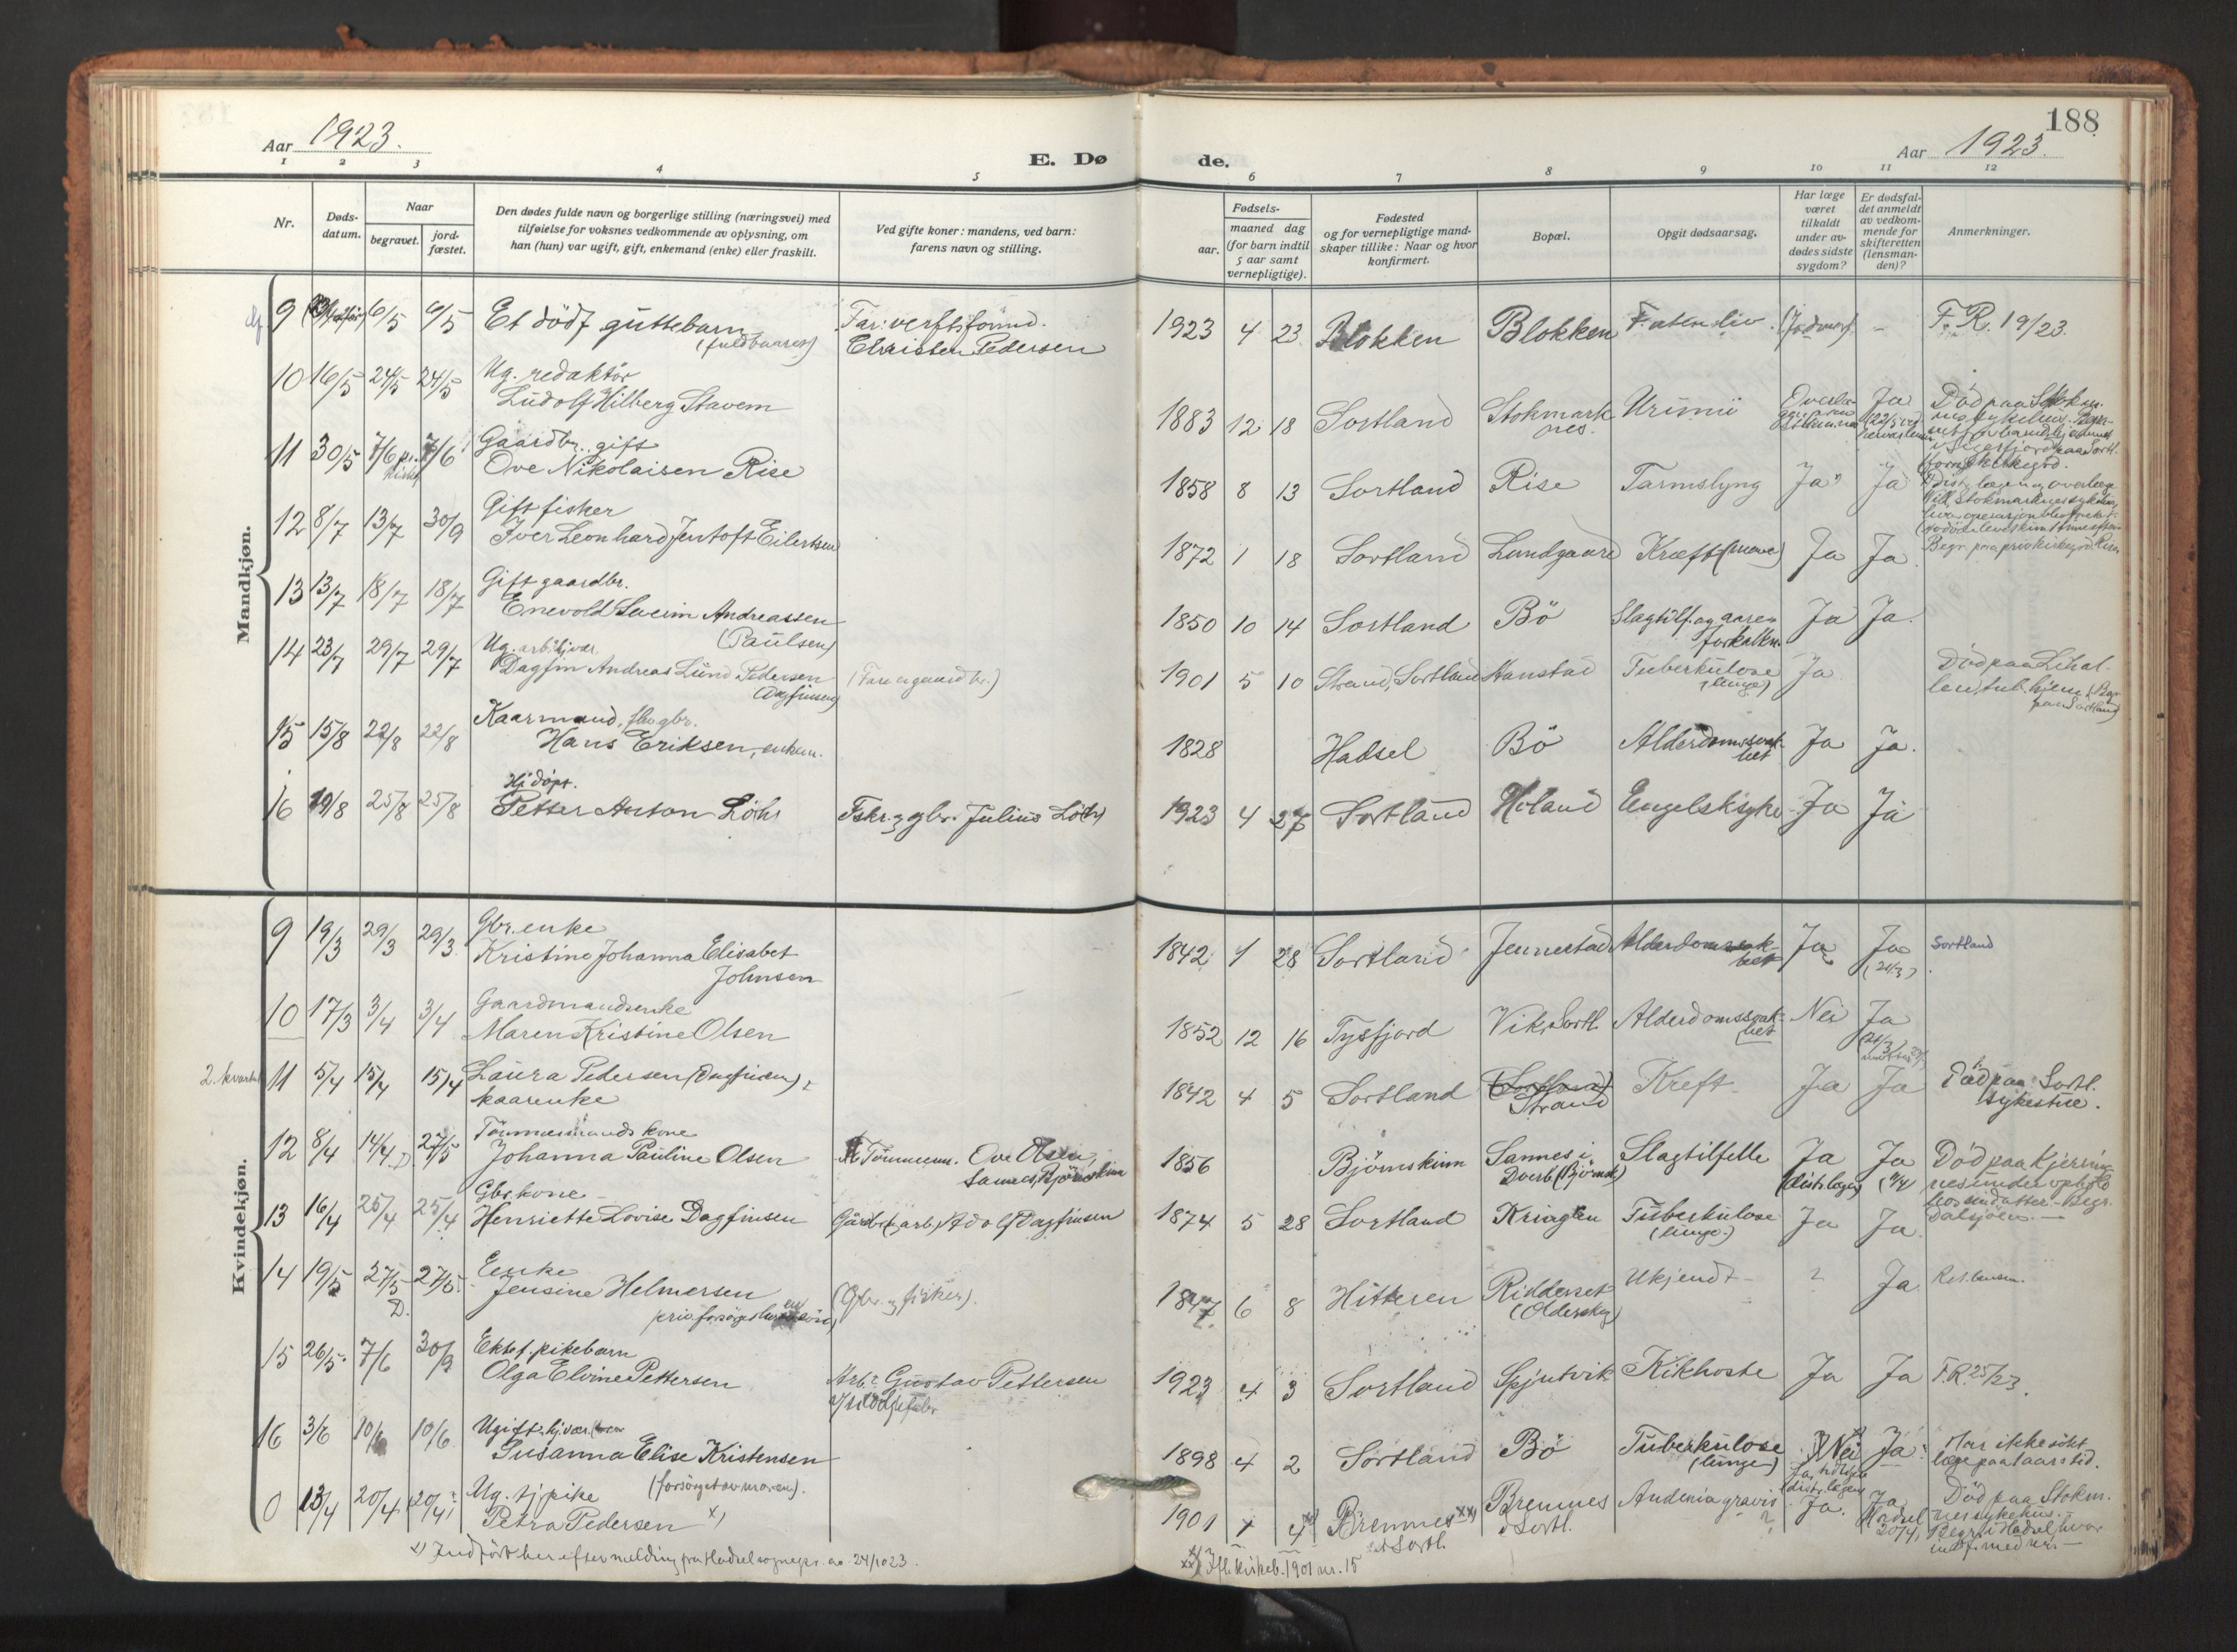 188
Aar 1923.
E. Dø
de.
Aar 1923.
1 2 3 4 5 6 7 8 9 10 11 12
Nr.
Døds-
datum.
Naar
begravet.
jord-
fæstet.
Den dødes fulde navn og borgerlige stilling (næringsvei) med
tilføielse for voksnes vedkommende av oplysning, om
han (hun) var ugift, gift, enkemand (enke) eller fraskilt.
Ved gifte koner: mandens, ved barn:
farens navn og stilling.
Fødsels-
aar.
maaned dag
(for barn indtil
5 aar samt
vernepligtige).
Fødested
og for vernepligtige mand-
skaper tillike: Naar og hvor
konfirmert.
Bopæl.
Opgit dødsaarsag.
Har læge
været
tilkaldt
under av-
dødes sidste
sygdom?
Er dødsfal-
det anmeldt
av vedkom-
mende for
skifteretten
(lensman-
den)?
Anmerkninger.
Mandkjøn.
9 6/5 6/5 Et dödf. guttebarn (fuldbaaret) Far: verftsformd. Christen Pedersen 1923 4 23 Blokken Blokken (Jordmor) - F. R. 19/23.
10 16/5 24/5 24/5 Ug. redaktör Ludolf Hilberg Stavem 1883 12 18 Sortland Stokmarknes. Urimii Ja
11 30/5 7/6 7/6 Gaardbr. gift Ove Nikolaisen Rise 1858 8 13 Sortland Rise Tarmslyng Ja Ja
12 8/7 13/7 30/9 Gift fisker Iver Leonhard Jentoft Eilertsen 1872 1 18 Sortland Lundgaard Kræft (mave) Ja Ja
13 13/7 18/7 18/7 Gift gaardbr. Enevold Severin Andreassen (Paulsen) 1850 10 14 Sortland Bö Slagtilf. og aareforkalkn. Ja Ja.
14 23/7 29/7 29/7 Ug. arb. hj.vær. Dagfin Andreas Lund Pedersen (Dagfinsen) (Faren gaardbr.) 1901 5 10 Strand, Sortland Hanstad Tuberkulose (lunge) Ja Död paa (Begr. paa Sortland)
15 15/8 22/8 22/8 Kaarmand, Hans Eriksen, enkem. 1828 Hadsel Bö Alderdomssvakhet Ja Ja.
16 19/8 25/8 25/8 Hj.döpt. Petter Anton Löhr Fskr. og gbr. Julius Löhr 1923 4 27 Sortland Holand Engelsksyke Ja Ja
Kvindekjøn.
9 19/3 29/3 29/3 Gbr.enke Kristine Johanna Elisabet Johnsen 1842 1 28 Sortland Jennestad Alderdomssvakhet Ja Ja (21/3) Sortland
10 17/3 3/4 3/4 Gaardmandsenke Maren Kristine Olsen 1852 12 16 Tysfjord Vik, Sortl. Alderdomssvakhet Nei Ja
2. kvartal 11 5/4 15/4 15/4 Laura Pedersen (Dagfinsen), kaarenke 1842 4 5 Sortland (Sortland) Strand Kreft Ja Ja Död paa Sortl. sykestue.
12 8/4 14/4 D. 27/5 Tömmermands kone Johanna Pauline Olsen Tömmerm. Ove Olsen Sannes, Björnskinn 1856 Björnskinn Sannes i Dverb. (Björnsk.) Slagtilfelle Ja (distr.lægen) Ja Död paa Kjerringnes under ophold hos sin datter - Begr.
13 16/4 25/4 25/4 Gbr.kone Henriette Lovise Dagfinsen Gårdbr. (arb.) Adolf Dagfinsen 1874 5 28 Sortland Kringlen Tuberkulose (lunge.) Ja Ja
14 19/5 27/5 D. 27/5 Enke Jensine Helmersen (Gbr. og fisker). 1847 6 8 Hitteren Ridderset (Oldersk.) Ukjendt ? Ja
15 26/5 7/6 30/9 Ektef. pikebarn Olga Elvine Pettersen Arb. Gustav Pettersen 1923 4 3 Sortland Spjutvik Kikhoste Ja Ja F.R. 25/23.
16 3/6 10/6 10/6 Ugift hj.vær. Susanna Elise Kristensen (forsörget av moren). 1898 4 2 Sortland Bö Tuberkulose (lunge) Nei Ja Har ikke sökt læge paa aarstid.
0 13/4 20/4 (20/4) Ug. tj.pike Petra Pedersen x) 1901 1 4 Bremnes xx) Sortl. Bremnes i Sortl. gravis ? Ja. Ja Hadsel 20/4 Död paa Stokmnes sykehus. Begr. i Hadsel, hvor indf. med nr. -
x) Indfört her efter melding fra Hadsel sognepr. av 24/10 23.
xx) kirkeb. 1901 nr. 15